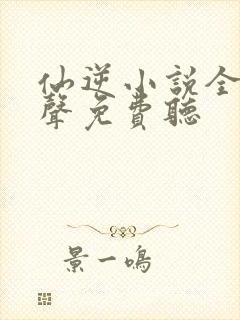 仙逆小說全
聲免費聽
景一鳴